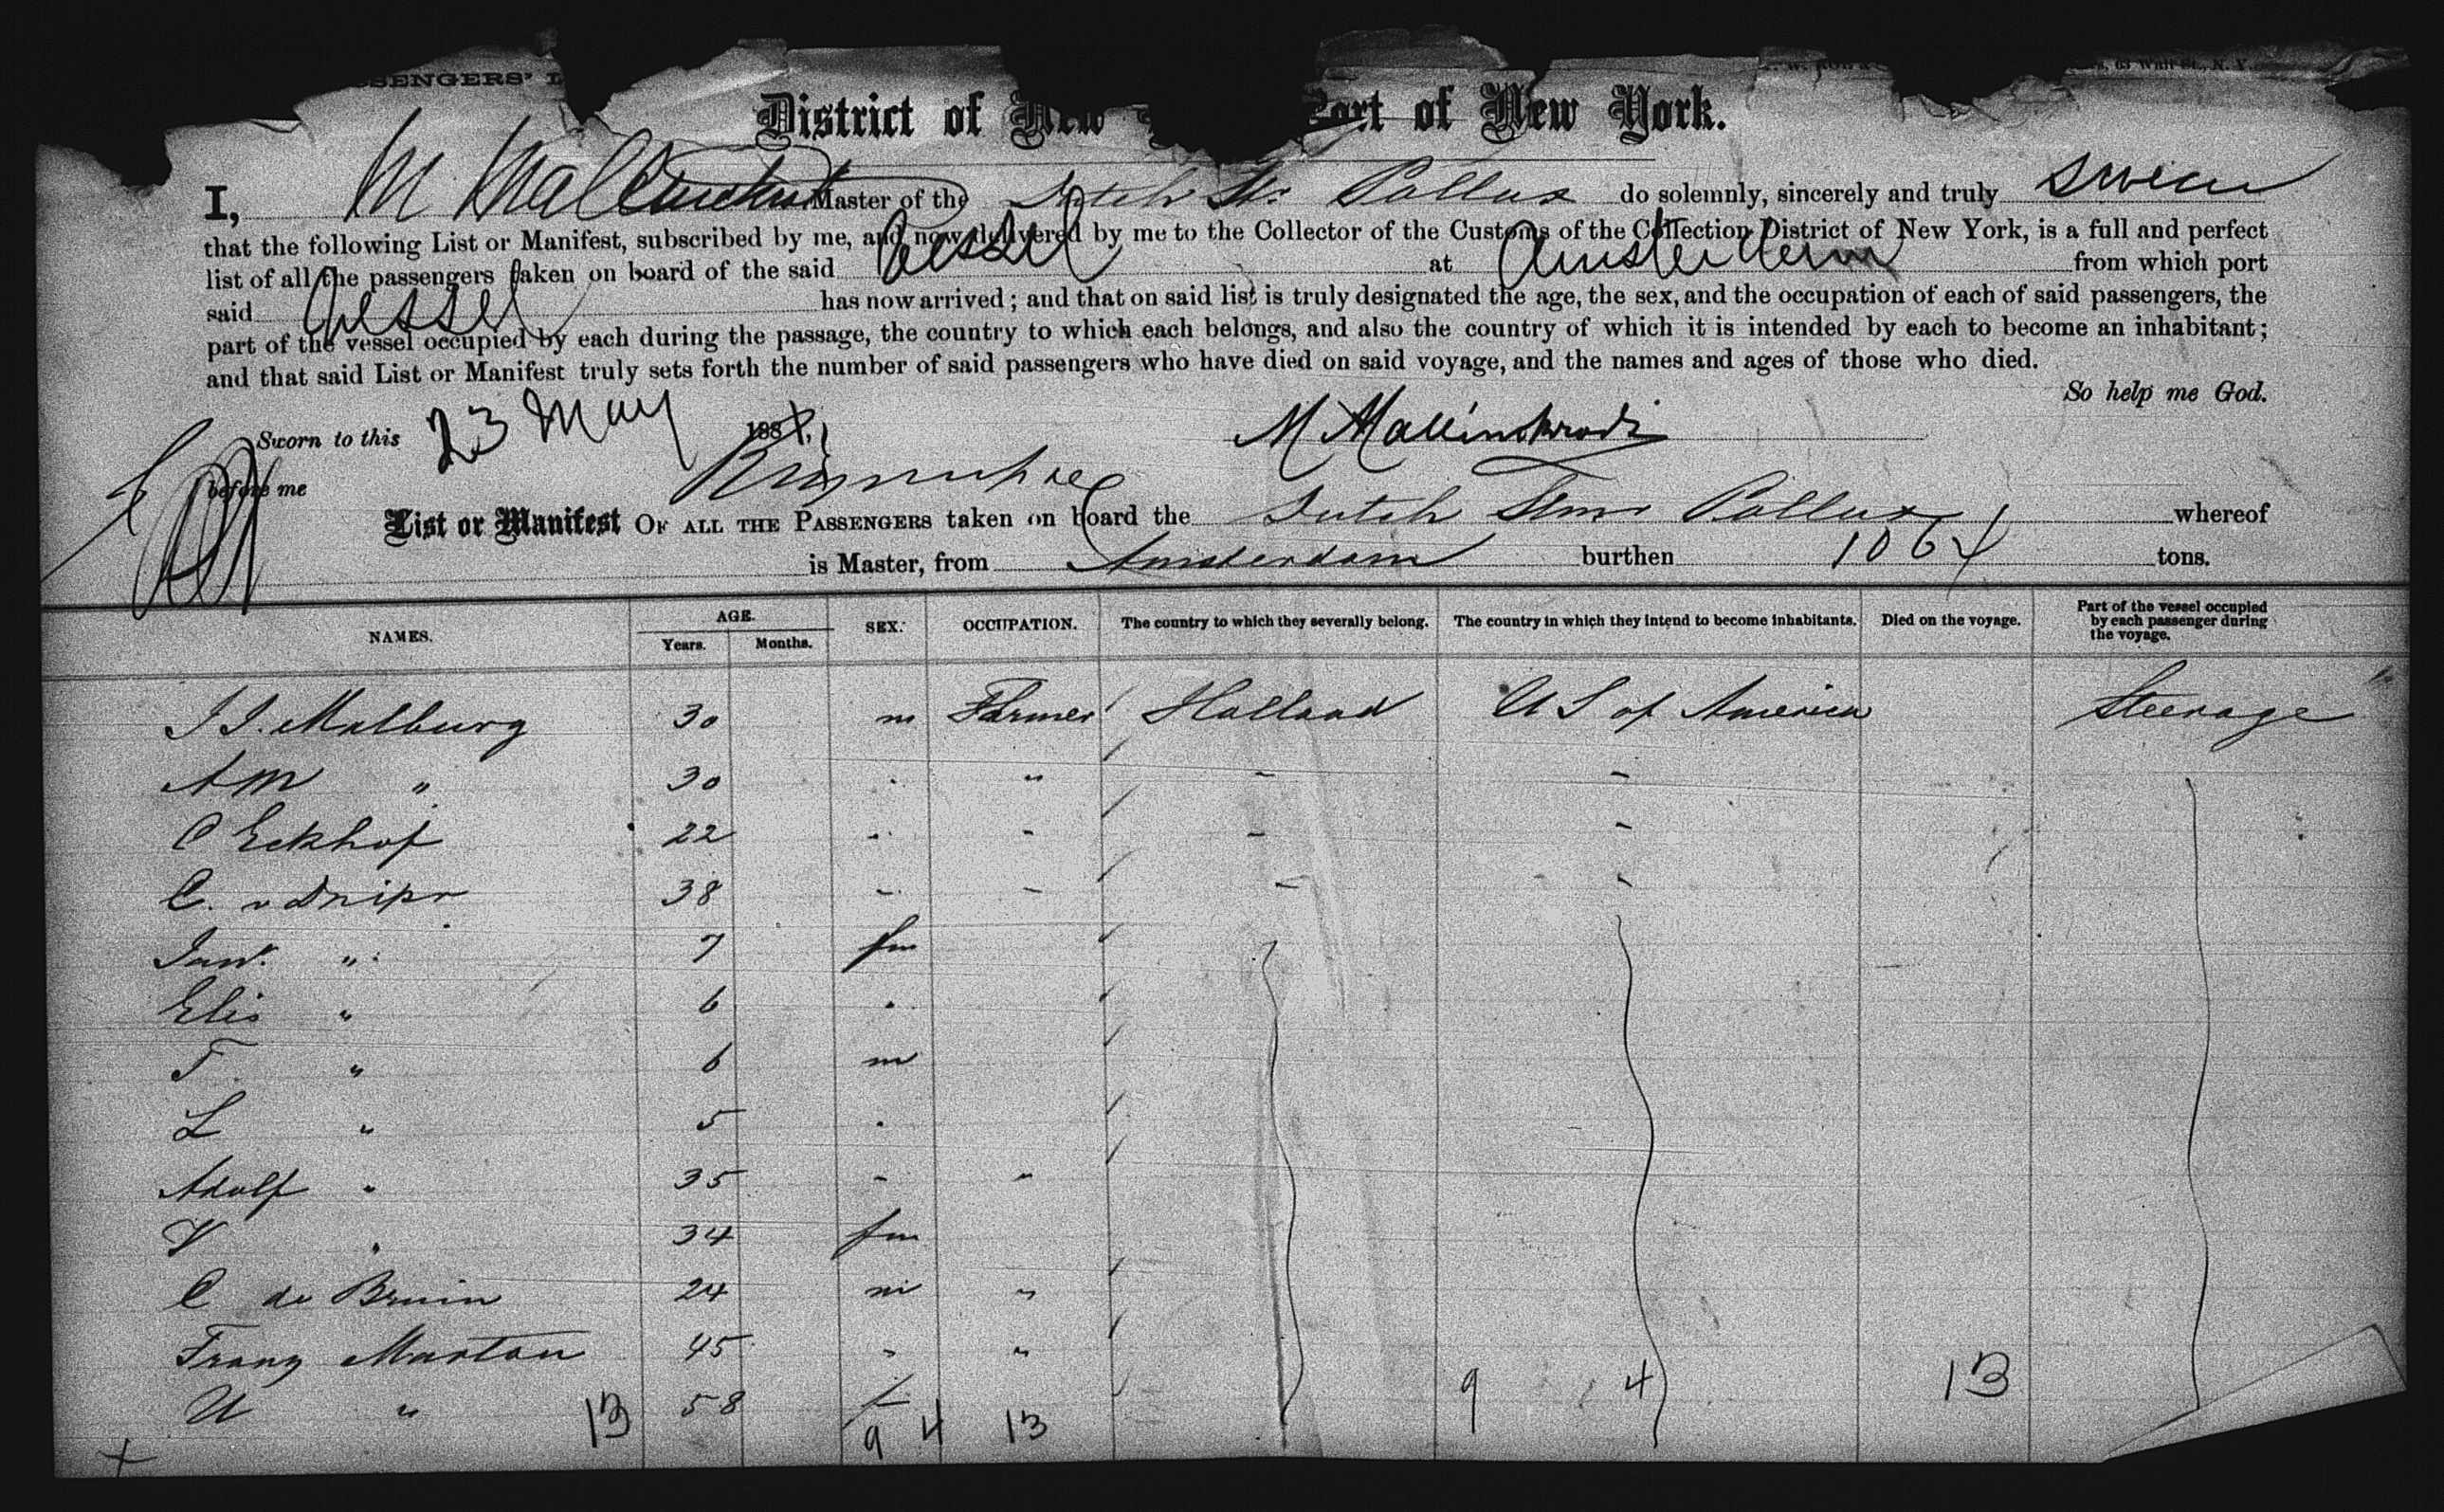 SENGERS' L
63 Wall St., N. Y.
District of New Port of New York.
I, M Mallinckrodt Master of the Dutch Str Pollux do solemnly, sincerely and truly swear
that the following List or Manifest, subscribed by me, and now delivered by me to the Collector of the Customs of the Collection District of New York, is a full and perfect
list of all the passengers taken on board of the said Vessel at Amsterdam from which port
said Vessel has now arrived; and that on said list is truly designated the age, the sex, and the occupation of each of said passengers, the
part of the vessel occupied by each during the passage, the country to which each belongs, and also the country of which it is intended by each to become an inhabitant;
and that said List or Manifest truly sets forth the number of said passengers who have died on said voyage, and the names and ages of those who died.
So help me God.
Sworn to this 23 May 188 M Mallinckrodt
before me
List or Manifest OF ALL THE PASSENGERS taken on board the Dutch Stmr Pollux whereof
is Master, from Amsterdam burthen 1064 tons.
NAMES. AGE. Years. Months. SEX. OCCUPATION. The country to which they severally belong. The country in which they intend to become inhabitants. Died on the voyage. Part of the vessel occupied by each passenger during the voyage.
J J. Malburg 30 m Farmer Holland U S of America Steerage
A M " 30 " " " "
C Eckhof 22 " " " "
C. v Dnipr 38 " " " "
" 7 fm
Elis " 6 "
F " 6 m
L " 5 "
Adolf " 35 " "
V " 34 fm
C de Bruin 24 m "
Franz Marton 45 " "
U " 13 58 f 9 4 13
9 4 13